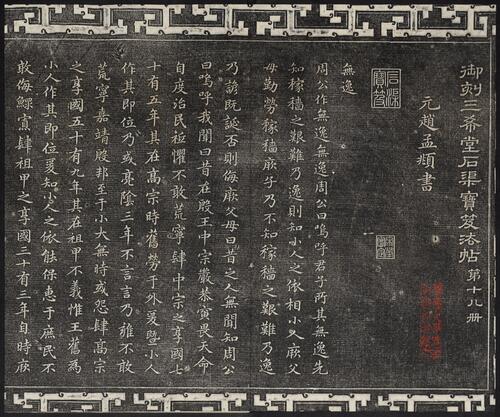 御刻三希堂石渠寶笈法帖 第十八册
元趙孟頫書
石渠寶笈
無逸
周公作無逸無逸周公曰嗚呼君子所其無逸先
知稼穡之艱難乃逸則知小人之依相小人厥父
母勤勞稼穡厥子乃不知稼穡之艱難乃逸
乃諺既誕否則侮厥父母曰昔之人無聞知周公
曰嗚呼我聞曰昔在殷王中宗嚴恭寅畏天命
自度治民祗懼不敢荒寧肆中宗之享國七
十有五年其在高宗時舊勞于外爰暨小人
作其即位乃或亮陰三年不言言乃雍不敢
荒寧嘉靖殷邦至于小大無時或怨肆高宗
之享國五十有九年其在祖甲不義惟王舊為
小人作其即位爰知小人之依能保惠于庶民不
敢侮鰥寡肆祖甲之享國三十有三年自時厥